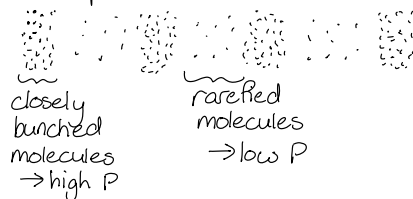 closely
bunched
molecules
→ high P
rarefied
molecules
→ low P